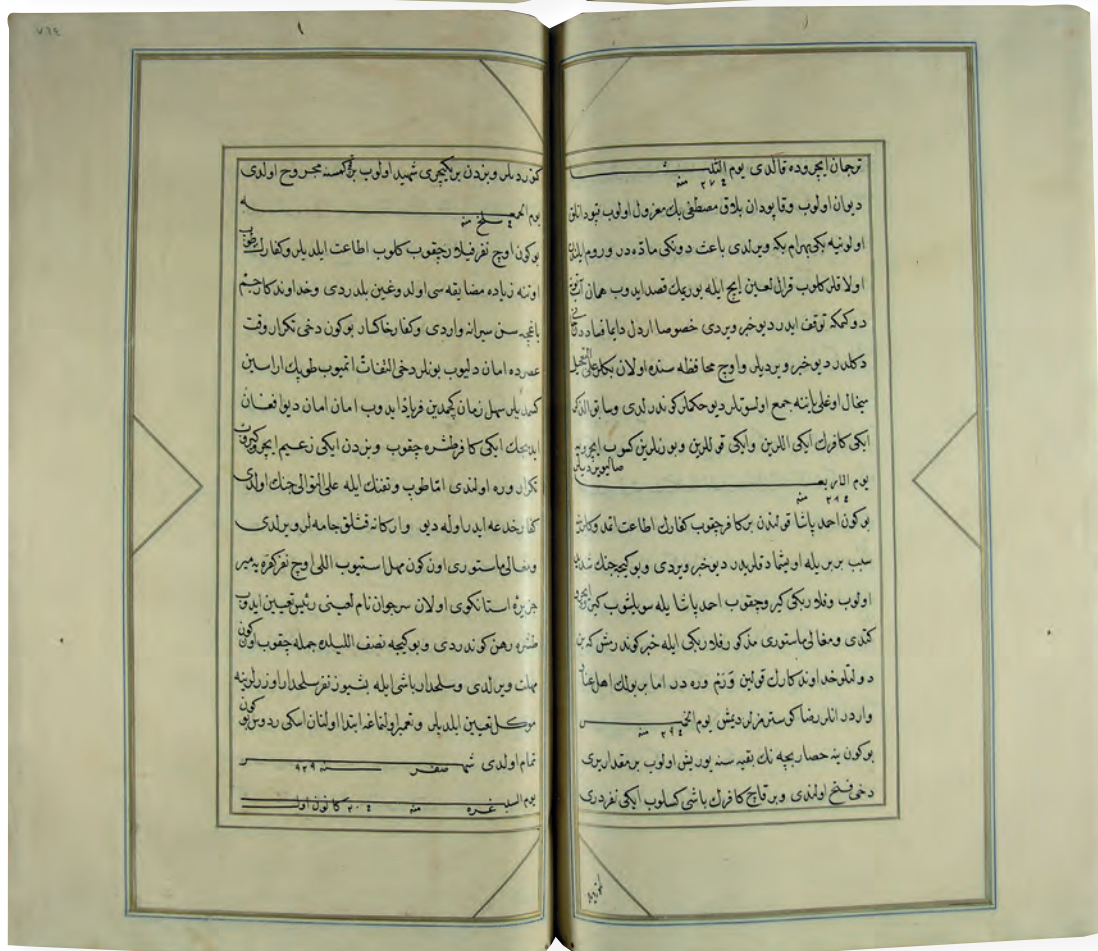 ترجمان ایچروده قالدی یوم الثلثا
فی ٢٧ منه
دیوان اولوب وقاپودان پلاق مصطفی بك معزول اولوب قپودانلق
اولونیه بکی بهرام بکه ویرلدی باعث دونکی ماده در وروم ایلندن
اولاقلر کلوب قرال لعین ایچ ایله یوریمك قصد ایدوب همان
دوکمکه توقف ایدر دیو خبر ویردی خصوصا اردل دایما فساددن
دکلدر دیو خبر ویردیلر واوچ محافظه سنده اولان بکلر علی التعجیل
میخال اوغلی یاننه جمع اولسونلر دیو حکملر کوندرلدی وسابق الذکر
ایکی کافرك ایکی اللرین وایکی قوللرین وبورنلرین کسوب ایچرویه
صالیویردیلر
یوم الاربعا
فی ٢٨ منه
بوکون احمد پاشا قولندن بر کافر چقوب کفارك اطاعت اتمدوکلرنه
سبب بربریله اویشمادقلریدر دیو خبر ویردی وبو کیجه جنك شدید
اولوب وفلاربکی کیرو چقوب احمد پاشا یله سویلشوب کیرو ایچرو
کتدی ومغالی ماستوری مذکور فلاربکی ایله خبر کوندرمش که بن
دولتلو خداوندکارك قولین ویرم وره در اما بر بولك اهل عناد
واردر انلر رضا کوسترمزلر دیمش یوم الخمیس
فی ٢٩ منه
بوکون ینه حصار بچه نك بقیه سنه یوریش اولوب بر مقدار یری
دخی فتح اولندی وبر قاچ کافرك باشی کسلوب ایکی نفر دری
کتوردیلر
٧٦٤
کتوردیلر وبزدن بر یکیچری شهید اولوب بر قچ کمسنه مجروح اولدی
یوم الجمعه
فی سلخ منه
بوکون اوچ نفر فیلار چقوب کلوب اطاعت ایلدیلر وکفارك
اوتنه زیاده مضایقه سی اولدوغین بلدردی وخداوندکار جم
باغچه سن سیرانه واردی وکفار خاکسار بوکون دخی تکرار وقت
عصرده امان دلیوب بونلر دخی التفات اتمیوب طوپك اراسین
کسمدیلر سهل زمان کچمدین فریاد ایدوب امان امان دیو افغان
ایدیجك ایکی کافر طشره چقوب وبزدن ایکی زعیم ایچرو کیروب
تکرار وره اولندی اما طوپ وتفنك ایله علی التوالی جنك اولدی
کفار خدعه ایدر اوله دیو وارکانه قشلق جامه لر ویرلدی
ومغالی ماستوری اون کون مهل استیوب اللی اوچ نفر کفره یه میر
جزیرۀ استانکوی اولان سرجوان نام لعینی رئیس تعیین ایدوب
طشره رهن کوندردی وبو کیجه نصف اللیلده جمله چقوب اون کون
مهلت ویرلدی وسلحدار باشی ایله بشیوز نفر سلحدار اوزرلرینه
موکل تعیین ایلدیلر وتعمیر اولنماغه ابتدا اولنان اسکی ردوس بو کون
تمام اولدی شهر صفر سنه ٩٢٩
یوم السبت غره منه فی ٢٠ کانون اول